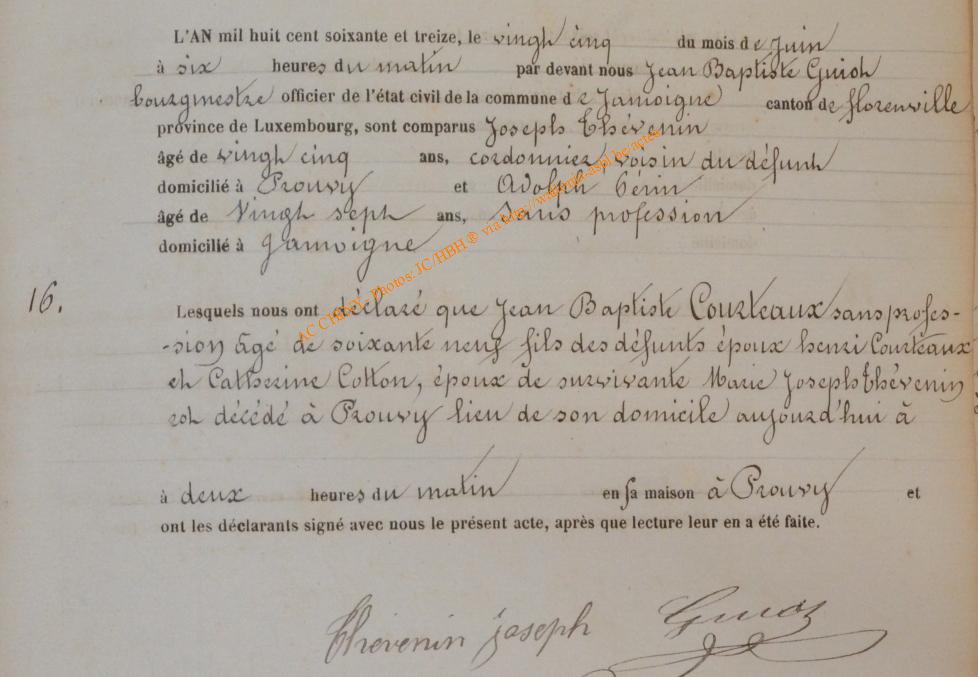 L'AN mil huit cent soixante et treize, le vingt cinq du mois de Juin
à six heures du matin par devant nous Jean Baptiste Guiot
bourgmestre officier de l'état civil de la commune de Jamoigne canton de florenville
province de Luxembourg, sont comparus Joseph Thévenin
âgé de vingt cinq ans, cordonnier, voisin du défunt
domicilié à Prouvy et Adolph Génin
âgé de Vingt sept ans, sans profession
domicilié à Jamoigne
16.
Lesquels nous ont déclaré que Jean Baptiste Courteaux sans profes-
-sion âgé de soixante neuf fils des défunts époux henri Courteaux
et Catherine Cotton, époux de survivante Marie Joseph Thévenin
est décédé à Prouvy lieu de son domicile aujourd'hui à
à deux heures du matin en sa maison à Prouvy et
ont les déclarants signé avec nous le présent acte, après que lecture leur en a été faite.
Thevenin joseph Guiot
AC CHINY. Photos: JC/HBH ® via http://www